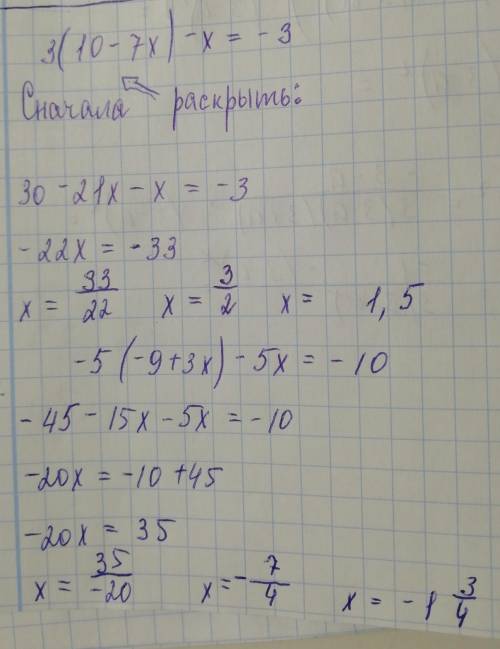 3(10 - 7x) - x = -3
Сначала раскрыть:
30 - 21x - x = -3
-22x = -33
x = 33/22 x = 3/2 x = 1,5
-5(-9+3x) - 5x = -10
-45 - 15x - 5x = -10
-20x = -10 + 45
-20x = 35
x = 35/-20 x = -7/4 x = -1 3/4